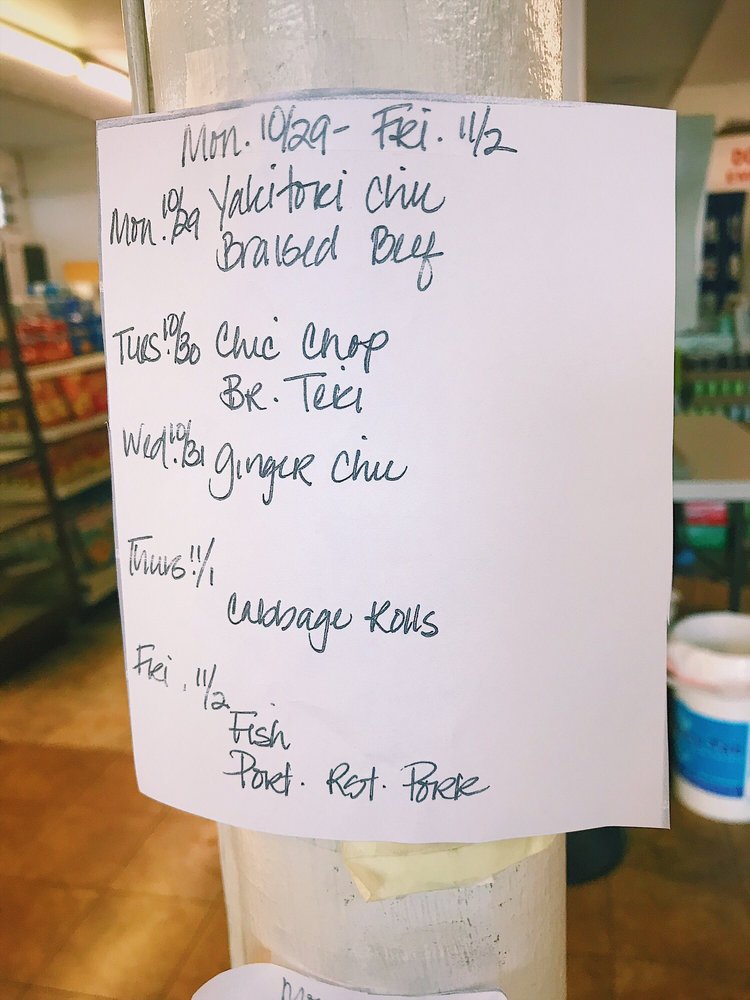 Mon. 10/29 - Fri. 11/2
Mon. 10/29 Yakitori Chic
Braised Beef
Tues. 10/30 Chic Chop
BR. Teri
Wed. 10/31 Ginger Chic
Thurs. 11/1
Cabbage Rolls
Fri. 11/2
Fish
Port. Rst. Pork
Mon